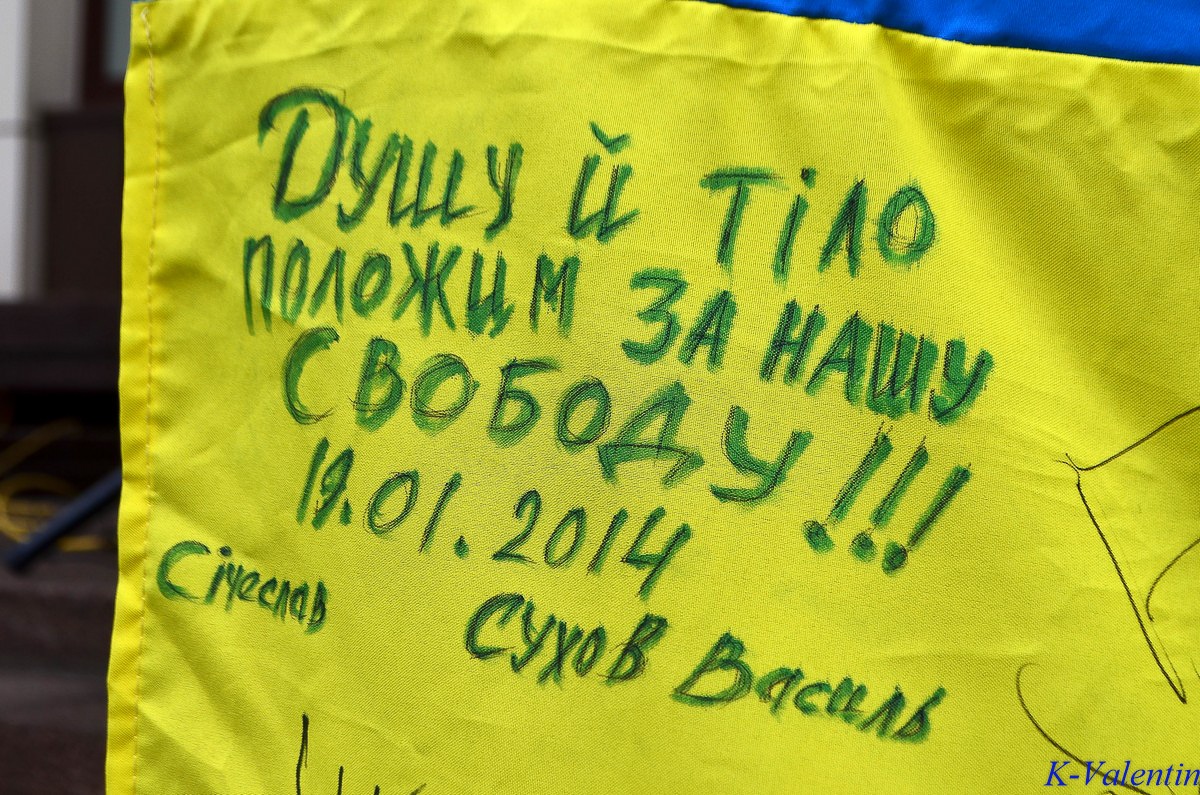 Душу й тіло
положим за нашу
свободу!!!
19.01.2014
Січеслав
Сухов Василь
K-Valentin